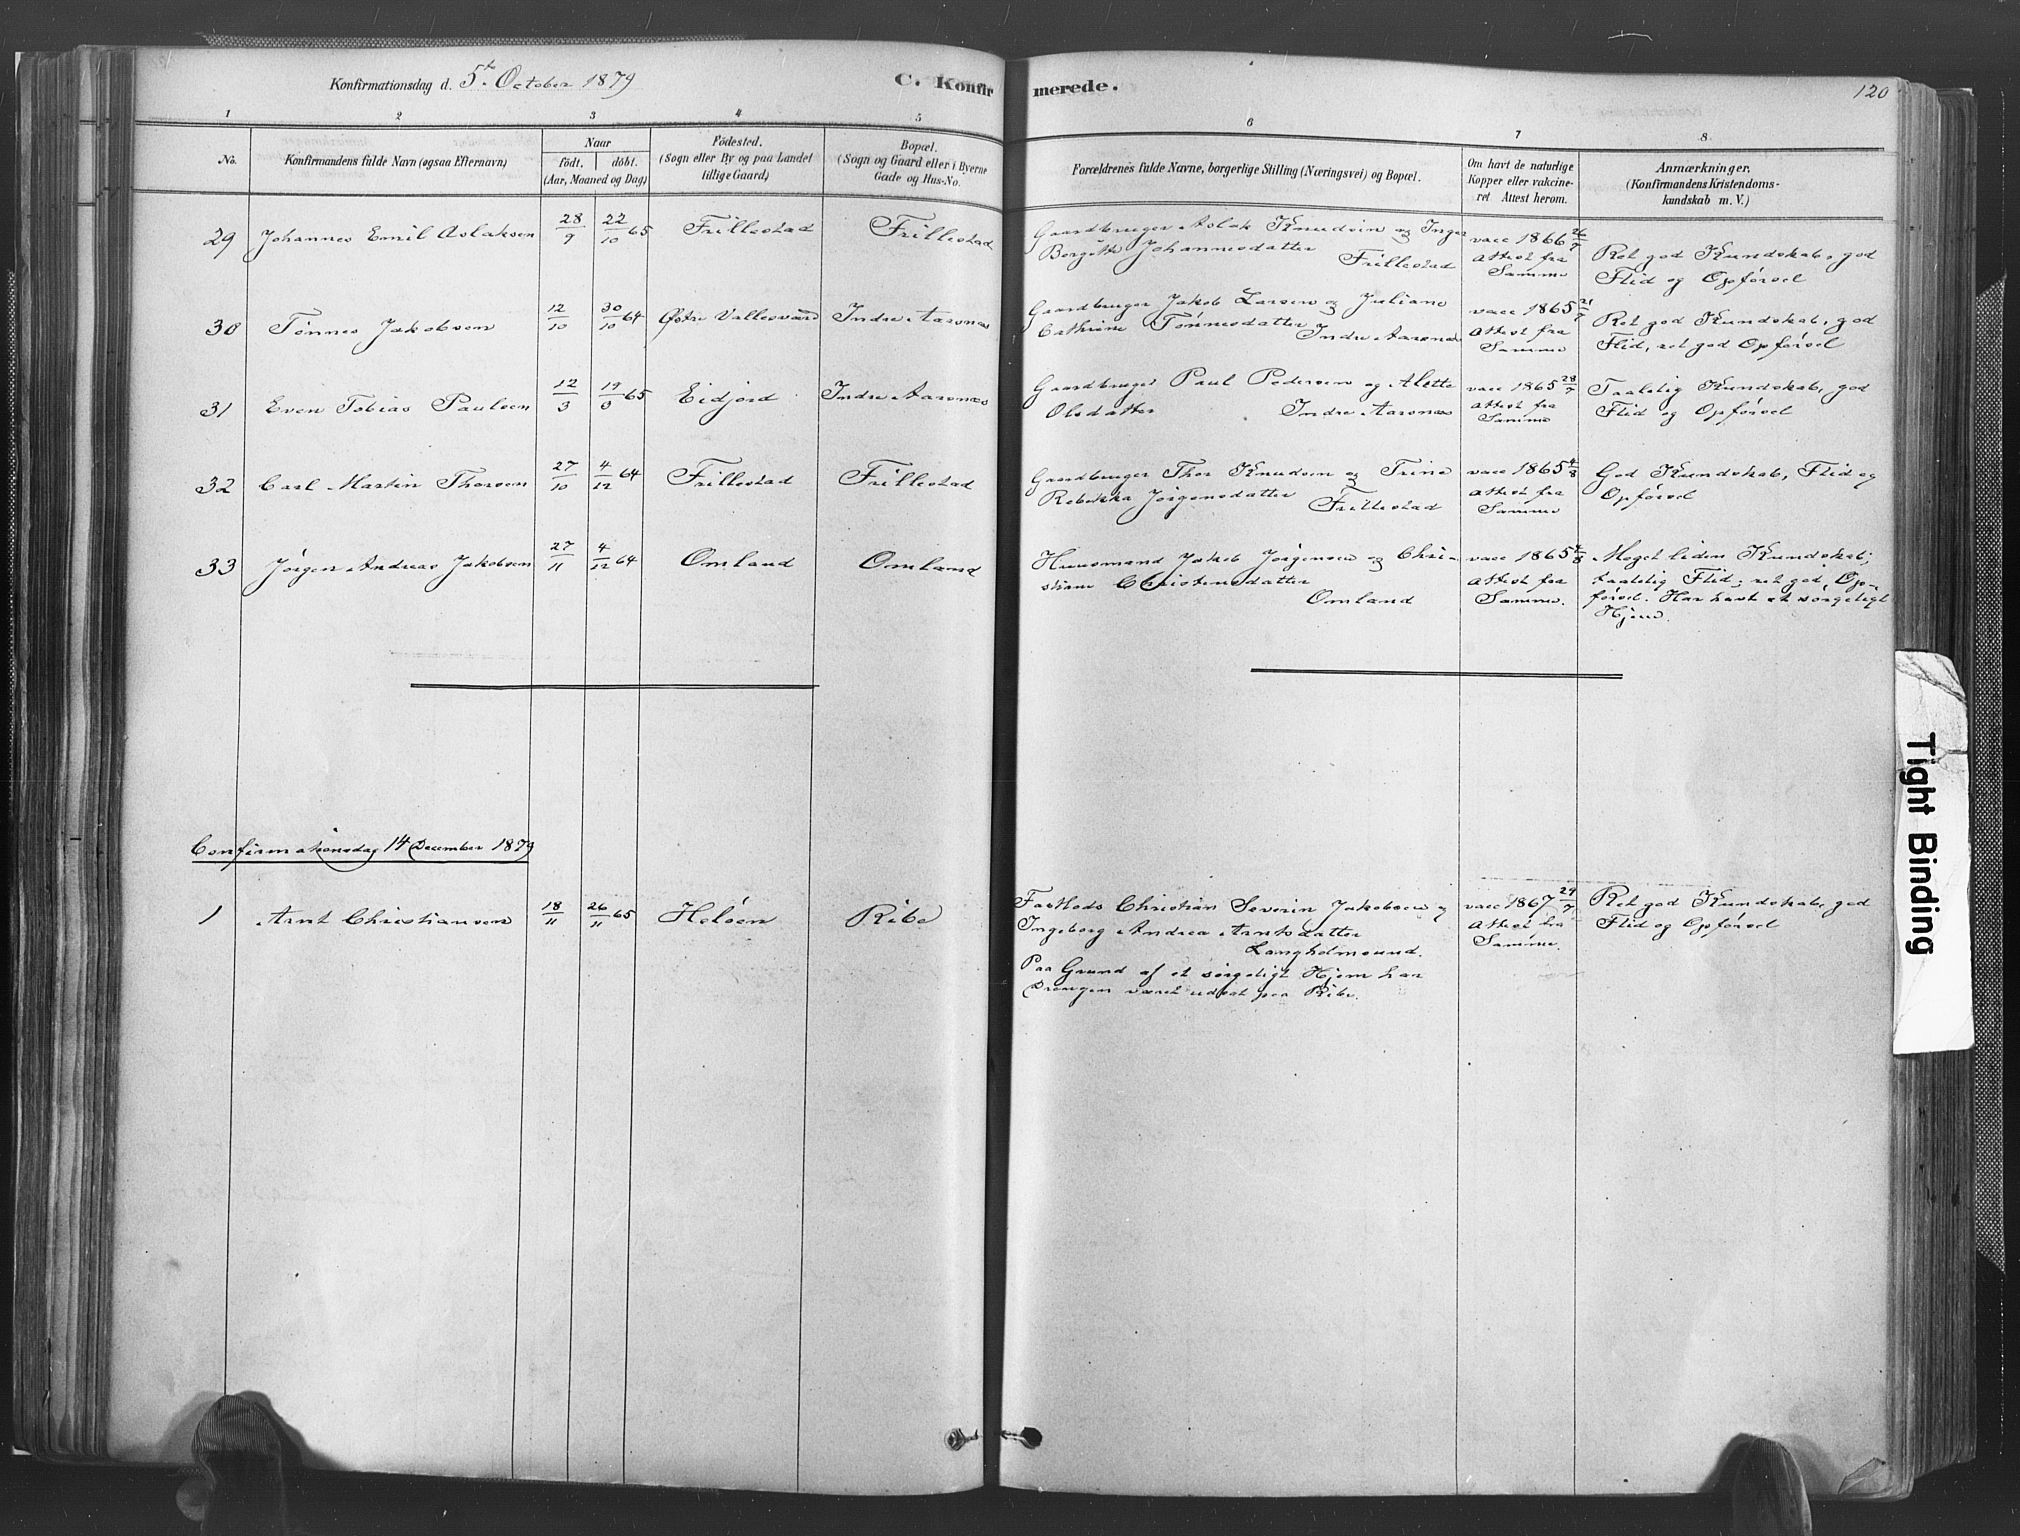 Konfirmationsdag d. 5te October 1879
C. Konfirmerede.
120
1 2 3 4 5 6 7 8
No.
Konfirmandens fulde Navn (ogsaa Efternavn)
Naar
födt. döbt.
(Aar, Maaned og Dag)
Födested.
(Sogn eller By og paa Landet
tillige Gaard)
Bopæl.
(Sogn og Gaard eller i Byerne
Gade og Hus-No.
Forældrenes fulde Navne, borgerlige Stilling (Næringsvei) og Bopæl.
Om havt de naturlige
Kopper eller vakcine-
ret Attest herom.
Anmærkninger.
(Konfirmandens Kristendoms-
kundskab m. V.)
29 Johannes Emil Aslaksen 28/9 22/10 65 Frillestad Frillestad
Gaardbruger Aslak Knudsen og Inger
Borgitte Johannesdatter
Frillestad
vacc 1866 26/7
Attest fra
Samme
Ret god Kundskab, god
Flid og Opførsel
30 Tønnes Jakobsen 12/10 30/10 64 Østre Vallesværd Indre Aarsnæs
Gaardbruger Jakob Larsen og Juliane
Cathrine Tønnesdatter
Indre Aarsnæs
vacc 1865 21/7
Attest fra
Samme
Ret god Kundskab, god
Flid, ret god Opførsel
31 Even Tobias Paulsen 12/3 19/3 65 Eidjord Indre Aarsnæs
Gaardbruger Paul Pedersen og Alette
Olsdatter Indre Aarsnæs
vacc 1865 28/7
Attest fra
Samme
Taalelig Kundskab, god
Flid og Opførsel
32 Carl Martin Thorsen 27/10 4/12 64 Frillestad Frillestad
Gaardbruger Thor Knudsen og Trine
Rebekka Jørgensdatter
Frillestad
vacc 1865 4/8
Attest fra
Samme
God Kundskab, Flid og
Opførsel
33 Jørgen Andreas Jakobsen 27/11 4/12 64 Omland Omland
Huusmand Jakob Jørgensen og Chri-
stiane Christensdatter
Omland
vacc 1865 4/8
Attest fra
Samme.
Meget liden Kundskab;
taalelig Flid; ret god Op-
førsel. Har havt et sørgeligt
Hjem.
Confirmationsdag 14 December 1879
1 Arnt Christiansen 18/11 26/11 65 Heløen Ribe
Christian Severin Jakobsen og
Ingeborg Andrea Arntsdatter
Langholmsund.
Paa Grund af et sørgeligt Hjem har
Drengen været udsat paa Ribe.
vacc 1867 29/7
Attest fra
Samme
Ret god Kundskab, god
Flid og Opførsel
Tight Binding